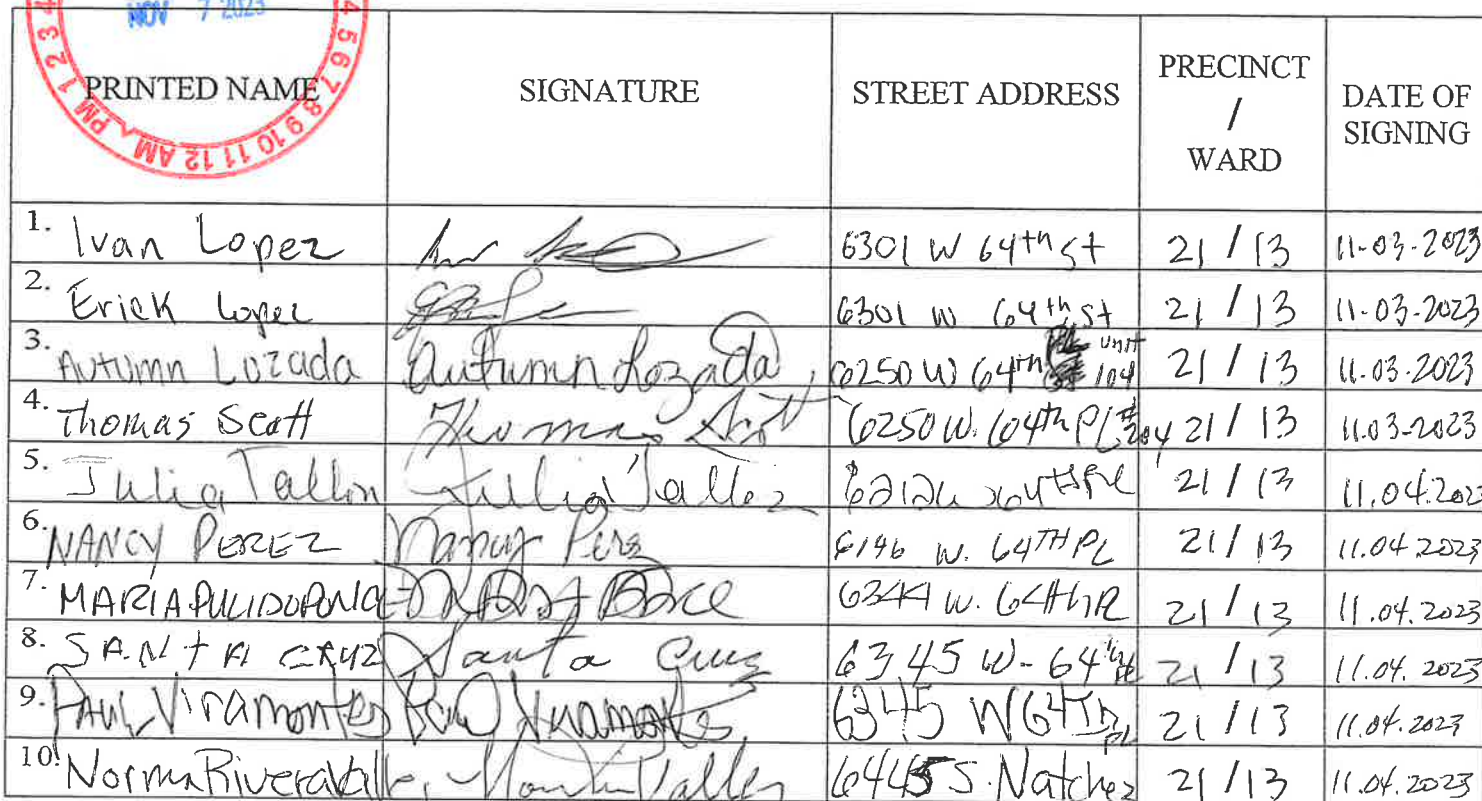 NOV 7 2023
1 2 3 4
4 5 6 7 8 9 10 11 12 AM PM
PRINTED NAME SIGNATURE STREET ADDRESS PRECINCT / WARD DATE OF SIGNING
1. Ivan Lopez 6301 W 64th St 21 / 13 11-03-2023
2. Erick Lopez 6301 W 64th St 21 / 13 11-03-2023
3. Autumn Lozada Autumn Lozada 6250 W 64th PL unit 104 21 / 13 11.03.2023
4. Thomas Scott Thomas Scott 6250 W. 64th Pl #204 21 / 13 11.03-2023
5. Julia Julia 21 / 13 11.04.2023
6. NANCY PEREZ Nancy Perez 6146 W. 64TH PL 21 / 13 11.04.2023
7. MARIA PULIDO PONCE 6344 W. 64th Pl 21 / 13 11.04.2023
8. SANTA CRUZ Santa Cruz 6345 W - 64th Pl 21 / 13 11.04.2023
9. PAUL Viramontes Paul Viramontes 6345 W 64th PL 21 / 13 11.04.2023
10. Norma Rivera 6445 S. Natchez 21 / 13 11.04.2023